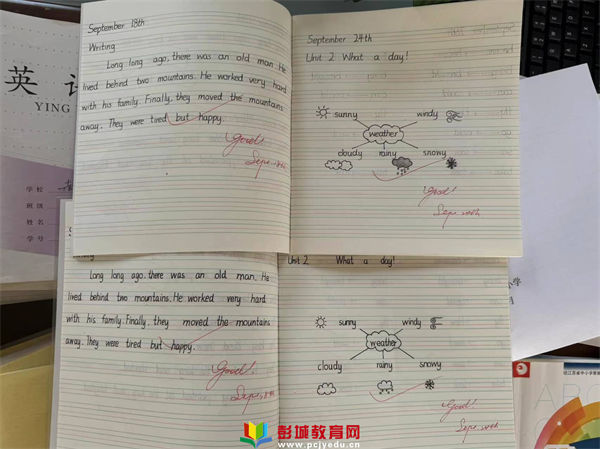 英
YING
学校
班级
姓名
学号
September 18th
Writing
Long long ago, there was an old man. He
lived behind two mountains. He worked very hard
with his family. Finally, they moved the mountains
away. They were tired but happy.
Good!
Sep. 18th
September 24th
Unit 2 What a day!
sunny
windy
weather
cloudy
rainy
snowy
Good!
Long long ago, there was an old man. He
lived behind two mountains. He worked very hard
with his family. Finally, they moved the mountains
away. They were tired but happy.
Good!
Unit 2 What a day!
sunny
windy
weather
cloudy
rainy
snowy
Good!
小学
ABC
彭城教育网
www.pcjyedu.cn